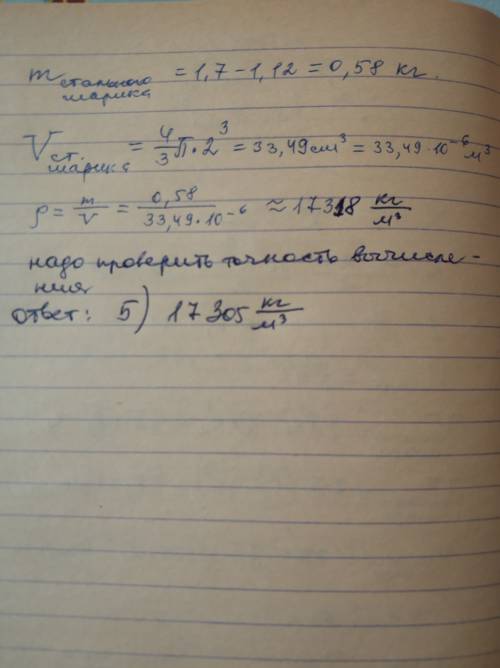 m стального шарика = 1,7 − 1,12 = 0,58 кг.
V ст. шарика = 4/3 π · 2³ = 33,49 см³ = 33,49 · 10⁻⁶ м³
ρ = m/V = 0,58 / 33,49 · 10⁻⁶ ≈ 17318 кг/м³
надо проверить точность вычисле-
ния
ответ: 5) 17305 кг/м³